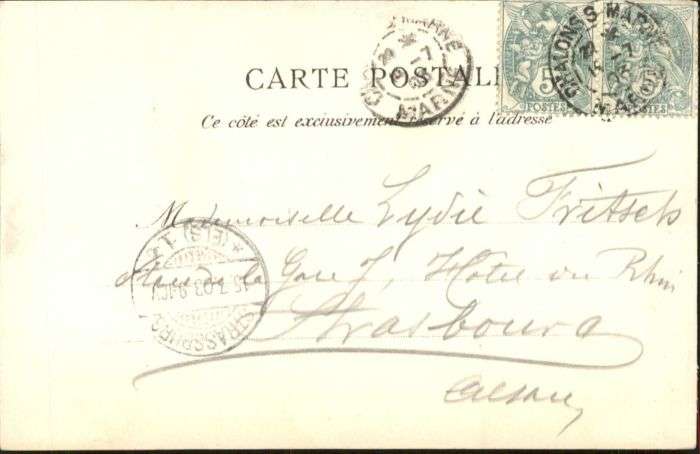 CARTE POSTALE
Ce côté est exclusivement réservé à l'adresse
CHALONS S. MARNE
MARNE
5 5
POSTES POSTES
Mademoiselle Lydie Fritsch
de la Gare 7, Hôtel du Rhin
Strasbourg
Alsace
STRASSBURG (ELS)